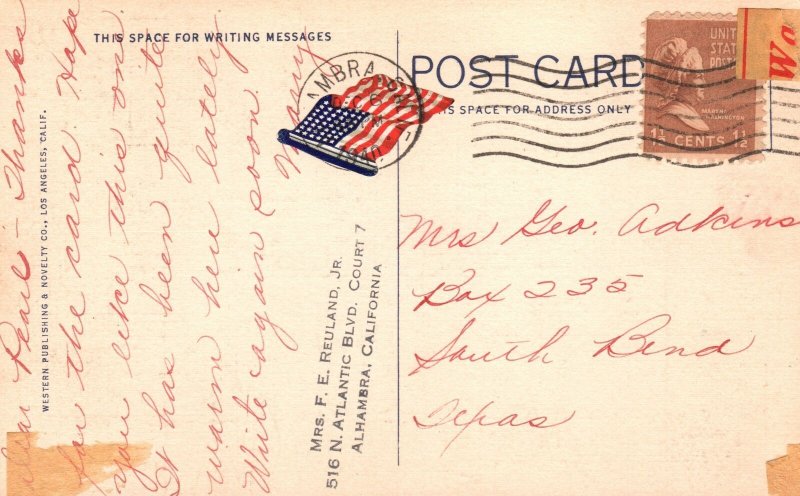 THIS SPACE FOR WRITING MESSAGES
Dear Pearl - Thanks
for the card. Hope
you like this one.
It has been quite
warm here lately
Write again soon.
Mary
WESTERN PUBLISHING & NOVELTY CO., LOS ANGELES, CALIF.
MRS. F. E. REULAND, JR.
516 N. ATLANTIC BLVD. COURT 7
ALHAMBRA, CALIFORNIA
AMBRA,
DEC 6
1940
POST CARD
THIS SPACE FOR ADDRESS ONLY
UNIT
STAT
POST
MARTHA
WASHINGTON
1½ CENTS 1½
Wo
Mrs Geo. Adkins
Box 235
South Bend
Texas